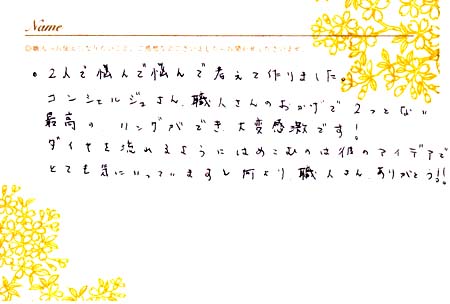 Name
◎職人へお伝えになりたいこと、ご感想などございましたらお聞かせくださいませ
。2人で悩んで悩んで考えて作りました。
コンシェルジュさん、職人さんのおかげで2つとない
最高のリングができ、大変感激です!
ダイヤを流れるようにはめこむのは彼のアイデアで
とても気にいっていますし何より、職人さん、ありがとう!!